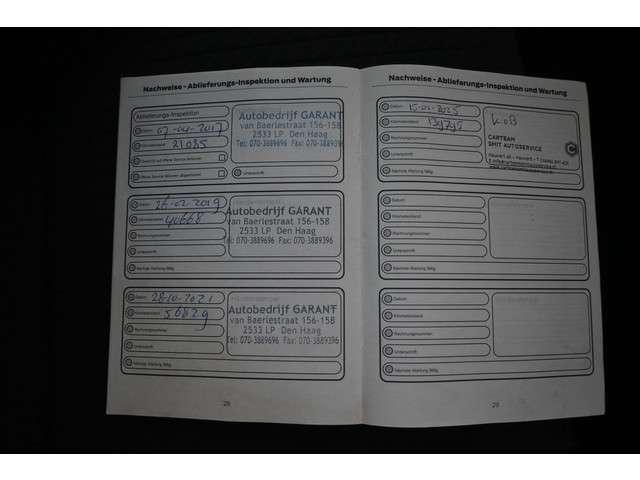 Nachweise - Ablieferungs-Inspektion und Wartung
Ablieferungs-Inspektion
Datum 07-04-2017
Kilometerstand 21035
Autobedrijf GARANT
van Baerlestraat 156-158
2533 LP Den Haag
Tel: 070-3889696 Fax: 070-3889396
Unterschrift
Datum 26-02-2019
Kilometerstand 40668
Rechnungsnummer
Unterschrift
Nächste Wartung fällig
Autobedrijf GARANT
van Baerlestraat 156-158
2533 LP Den Haag
Tel: 070-3889696 Fax: 070-3889396
Datum 28-10-2021
Kilometerstand 56829
Rechnungsnummer
Unterschrift
Nächste Wartung fällig
Autobedrijf GARANT
van Baerlestraat 156-158
2533 LP Den Haag
Tel: 070-3889696 Fax: 070-3889396
28
Nachweise - Ablieferungs-Inspektion und Wartung
Datum 15-01-2025
Kilometerstand
Rechnungsnummer
Unterschrift
Nächste Wartung fällig
CARTEAM
SMIT AUTOSERVICE
Datum
Kilometerstand
Rechnungsnummer
Unterschrift
Nächste Wartung fällig
Datum
Kilometerstand
Rechnungsnummer
Unterschrift
Nächste Wartung fällig
29